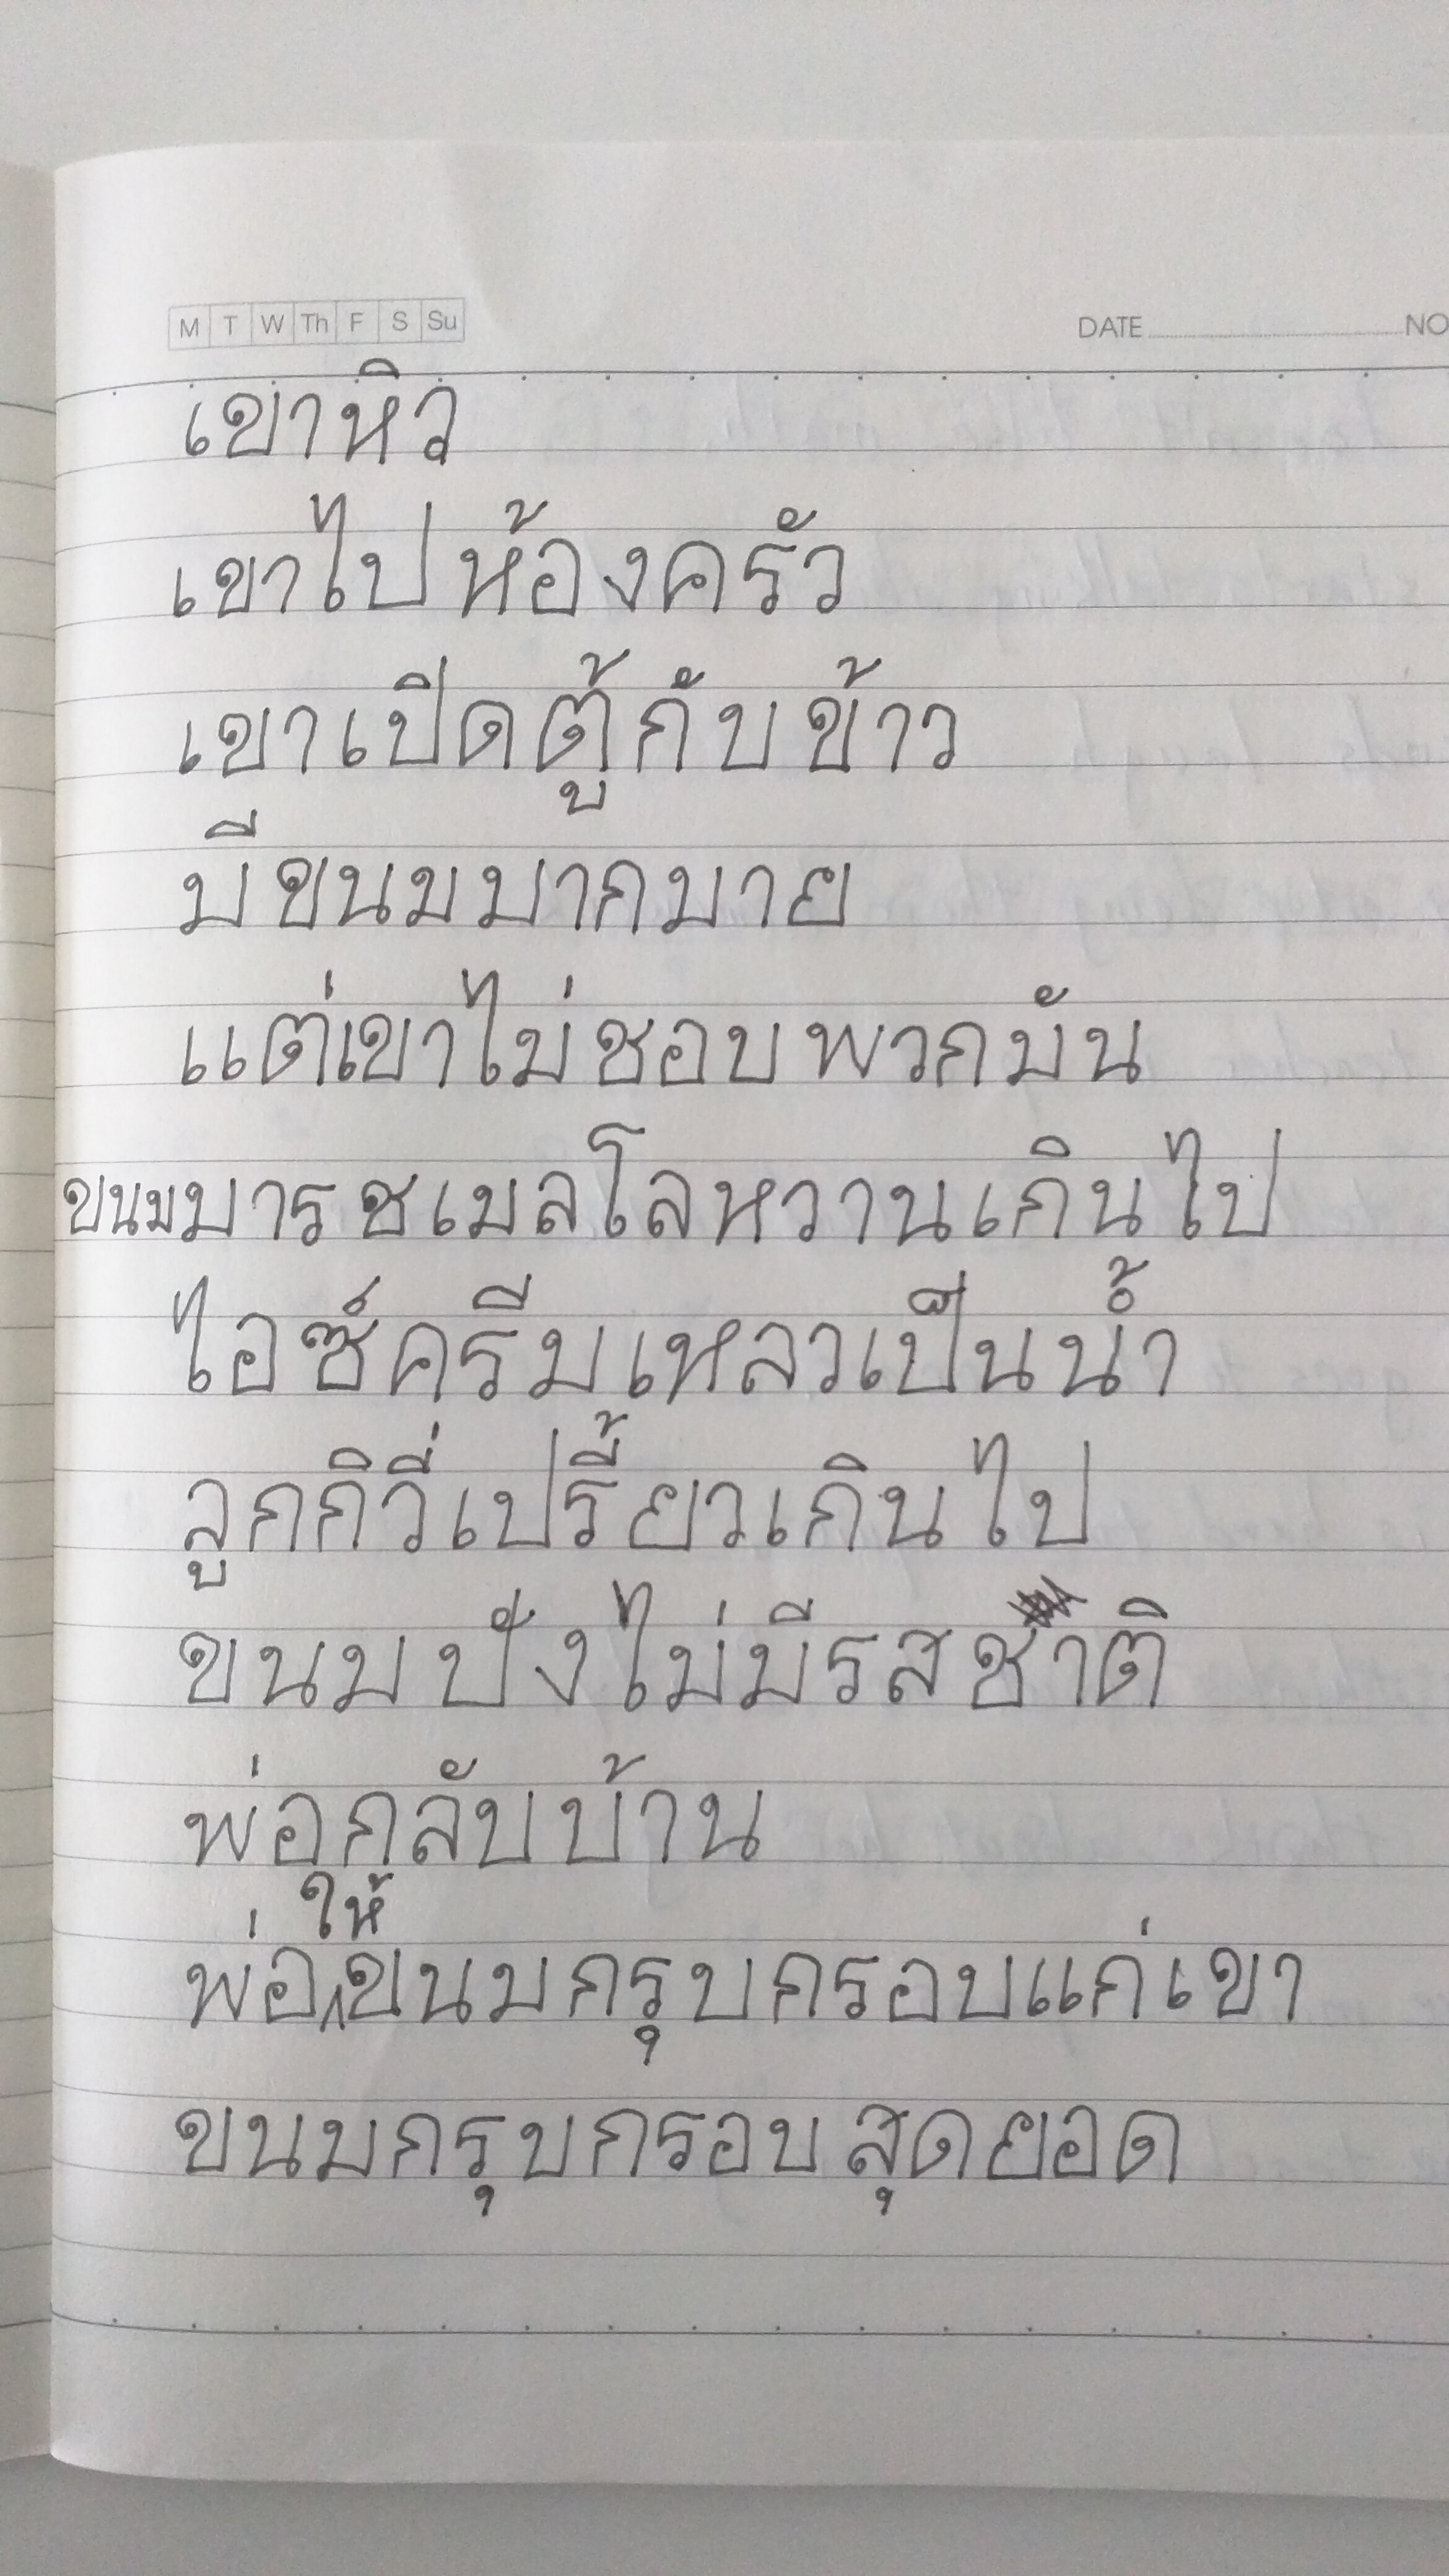 M T W Th F S Su DATE NO
เขาหิว
เขาไปห้องครัว
เขาเปิดตู้กับข้าว
มีขนมมากมาย
แต่เขาไม่ชอบพวกมัน
ขนมมารชเมลโลหวานเกินไป
ไอซ์ครีมเหลวเป็นน้ำ
ลูกกิวี่เปรี้ยวเกินไป
ขนมปังไม่มีรสชาติ
พ่อกลับบ้าน
พ่อให้ขนมกรุบกรอบแก่เขา
ขนมกรุบกรอบสุดยอด